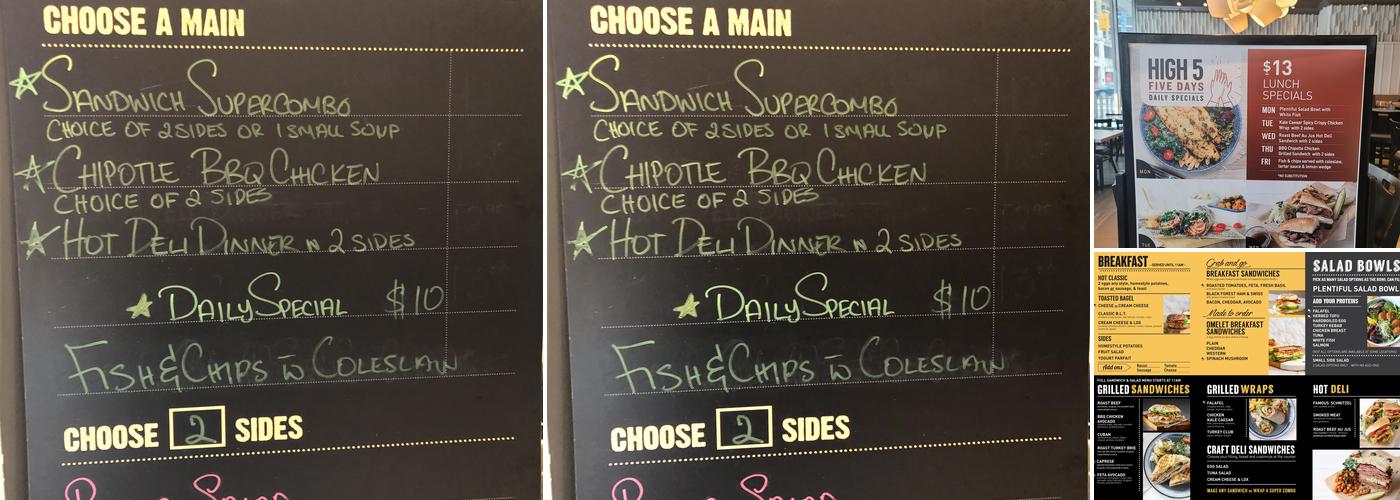 CHOOSE A MAIN
SANDWICH SUPERCOMBO
CHOICE OF 2 SIDES OR 1 SMALL SOUP
CHIPOTLE BBQ CHICKEN
CHOICE OF 2 SIDES
HOT DELI DINNER W 2 SIDES
DAILY SPECIAL $10
FISH & CHIPS W COLESLAW
CHOOSE 2 SIDES
CHOOSE A MAIN
SANDWICH SUPERCOMBO
CHOICE OF 2 SIDES OR 1 SMALL SOUP
CHIPOTLE BBQ CHICKEN
CHOICE OF 2 SIDES
HOT DELI DINNER W 2 SIDES
DAILY SPECIAL $10
FISH & CHIPS W COLESLAW
CHOOSE 2 SIDES
HIGH 5
FIVE DAYS
DAILY SPECIALS
MON
$13
LUNCH
SPECIALS
MON Plentiful Salad Bowl with
White Fish
TUE Kale Caesar Spicy Crispy Chicken
Wrap with 2 sides
WED Roast Beef Au Jus Hot Deli
Sandwich with 2 sides
THU BBQ Chipotle Chicken
Grilled Sandwich with 2 sides
FRI Fish & chips served with coleslaw,
tartar sauce & lemon wedge
*NO SUBSTITUTION
TUE
WED
BREAKFAST - SERVED UNTIL 11AM -
HOT CLASSIC
2 eggs any style, homestyle potatoes,
bacon or sausage, & toast
TOASTED BAGEL
CHEESE or CREAM CHEESE
CLASSIC B.L.T.
CREAM CHEESE & LOX
SIDES
HOMESTYLE POTATOES
FRUIT SALAD
YOGURT PARFAIT
Add ons
Bacon
Sausage
Tomato
Cheese
Grab and go
BREAKFAST SANDWICHES
ROASTED TOMATOES, FETA, FRESH BASIL
BLACK FOREST HAM & SWISS
BACON, CHEDDAR, AVOCADO
Made to order
OMELET BREAKFAST
SANDWICHES
PLAIN
CHEDDAR
WESTERN
SPINACH MUSHROOM
SALAD BOWLS
PLENTIFUL SALAD BOWL
ADD YOUR PROTEINS
FALAFEL
HERBED TOFU
HARDBOILED EGG
TURKEY KEBAB
CHICKEN BREAST
TUNA
WHITE FISH
SALMON
SMALL SIDE SALAD
FULL SANDWICH & SALAD MENU STARTS AT 11AM
GRILLED SANDWICHES
ROAST BEEF
BBQ CHICKEN
AVOCADO
CUBAN
ROAST TURKEY BRIE
CAPRESE
FETA AVOCADO
GRILLED WRAPS
FALAFEL
CHICKEN
KALE CAESAR
TURKEY CLUB
CRAFT DELI SANDWICHES
EGG SALAD
TUNA SALAD
CREAM CHEESE & LOX
MAKE ANY SANDWICH or WRAP A SUPER COMBO
HOT DELI
FAMOUS SCHNITZEL
SMOKED MEAT
ROAST BEEF AU JUS